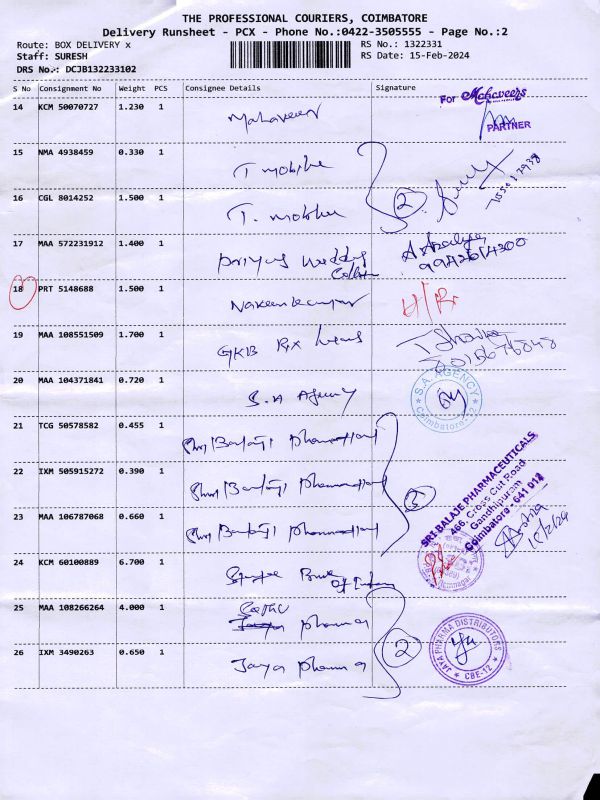 THE PROFESSIONAL COURIERS, COIMBATORE
Delivery Runsheet - PCX - Phone No.:0422-3505555 - Page No.:2
Route: BOX DELIVERY x
RS No.: 1322331
Staff: SURESH
RS Date: 15-Feb-2024
DRS No.: DCJB132233102
S No Consignment No Weight PCS Consignee Details Signature
14 KCM 50070727 1.230 1 Mahaveers
For Mahaveers
PARTNER
15 NMA 4938459 0.330 1 T mobile
16 CGL 8014252 1.500 1 T. mobile
2
17 MAA 572231912 1.400 1 Priyus Wedding
18 PRT 5148688 1.500 1 Naveenkumar
19 MAA 108551509 1.700 1 GKB Rx Lens
20 MAA 104371841 0.720 1 S.A Agency
S.A. AGENCY
Coimbatore-12
21 TCG 50578582 0.455 1 Shri Balaji Pharma
22 IXM 505915272 0.390 1 Shri Balaji Pharma
23 MAA 106787068 0.660 1 Shri Balaji Pharma
3
SRI BALAJE PHARMACEUTICALS
466, Cross Cut Road
Gandhipuram
Coimbatore - 641 012
15/2/24
24 KCM 60100889 6.700 1 Of India
25 MAA 108266264 4.000 1 Pharma
26 IXM 3490263 0.650 1 Jaya Pharma
2
JAYA PHARMA DISTRIBUTORS
CBE-12